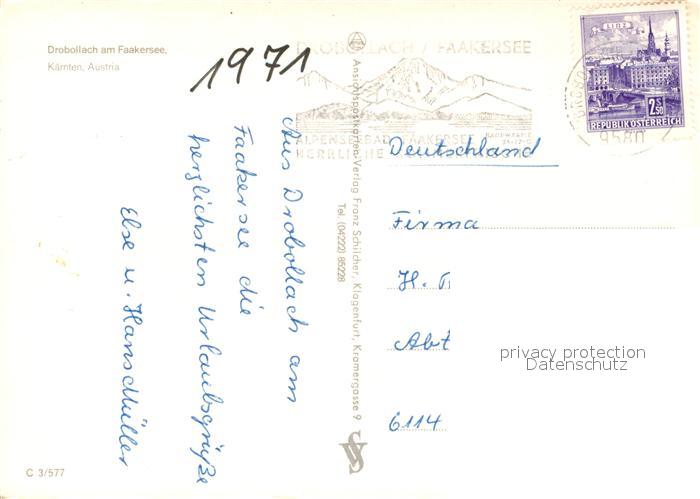 Drobollach am Faakersee,
Kärnten, Austria
1971
DROBOLLACH / FAAKERSEE
ALPENSEEBAD FAAKERSEE
LINZ
2.50
S
REPUBLIK ÖSTERREICH
9580
Aus Drobollach am
Faakersee die
herzlichsten Urlaubsgrüße
Else u. Hans Müller
Ansichtspostkarten-Verlag Franz Schilcher, Klagenfurt, Kramergasse 9
Tel. (04222) 85228
Deutschland
Firma
H.
Abt
6114
privacy protection
Datenschutz
C 3/577